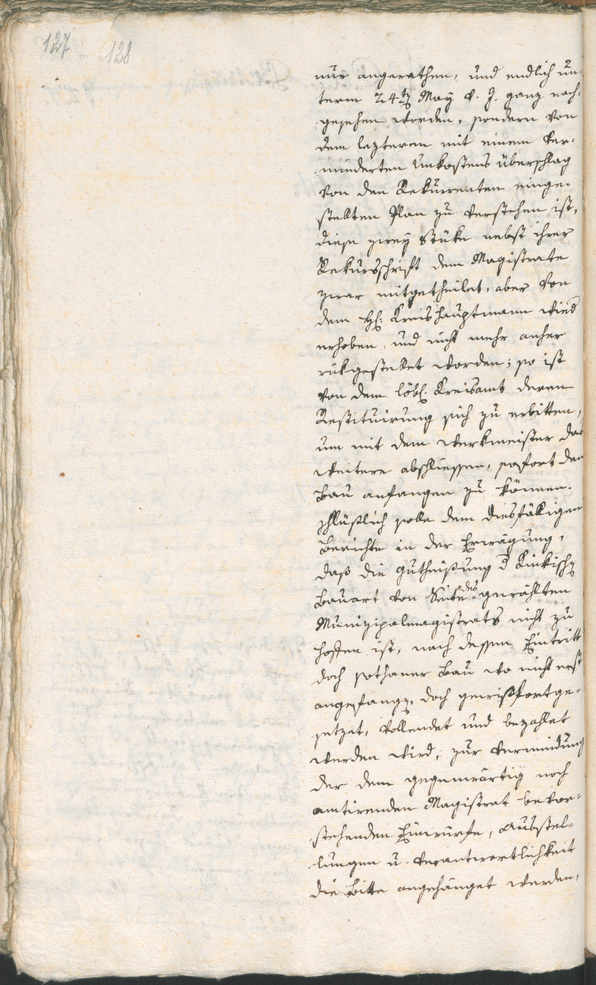 127 128
nur angerathen, und endlich un-
term 24ten May v. J. ganz nach-
gesehen worden, sondern von
dem lezteren mit einem ver-
minderten Unkostens überschlag
von den Rekurrenten einge-
stellten Plan zu verstehen ist,
diese zwey Stüke nebst ihrer
Rekursschrift dem Magistrate
zwar mitgetheilet, aber von
dem H: Kreishauptmann wied
erhoben, und nicht mehr anher
rükgestellet worden; so ist
von dem löbl: Kreisamt deren
Restituirung sich zu erbitten,
um mit dem Werkmeister das
weitere abschliessen, sofort den
Bau anfangen zu können.
schlüßlich solle dem diesfäligen
Berichte in der Erwägung,
daß die Gutheißung d
Bauart von Seite des gewählten
Munizipalmagistrats nicht zu
hoffen ist, nach dessen Eintritt
doch sothaner Bau wo nicht erst
angefangen, doch gewiß fortge-
setzet, vollendet und bezahlet
werden wird, zur Vermeidung
der dem gegenwärtig noch
amtirenden Magistrat bevor-
stehenden Einwürfe, Ausstel-
lungen u. Verantwortlichkeit
die Bitte angehänget werden,